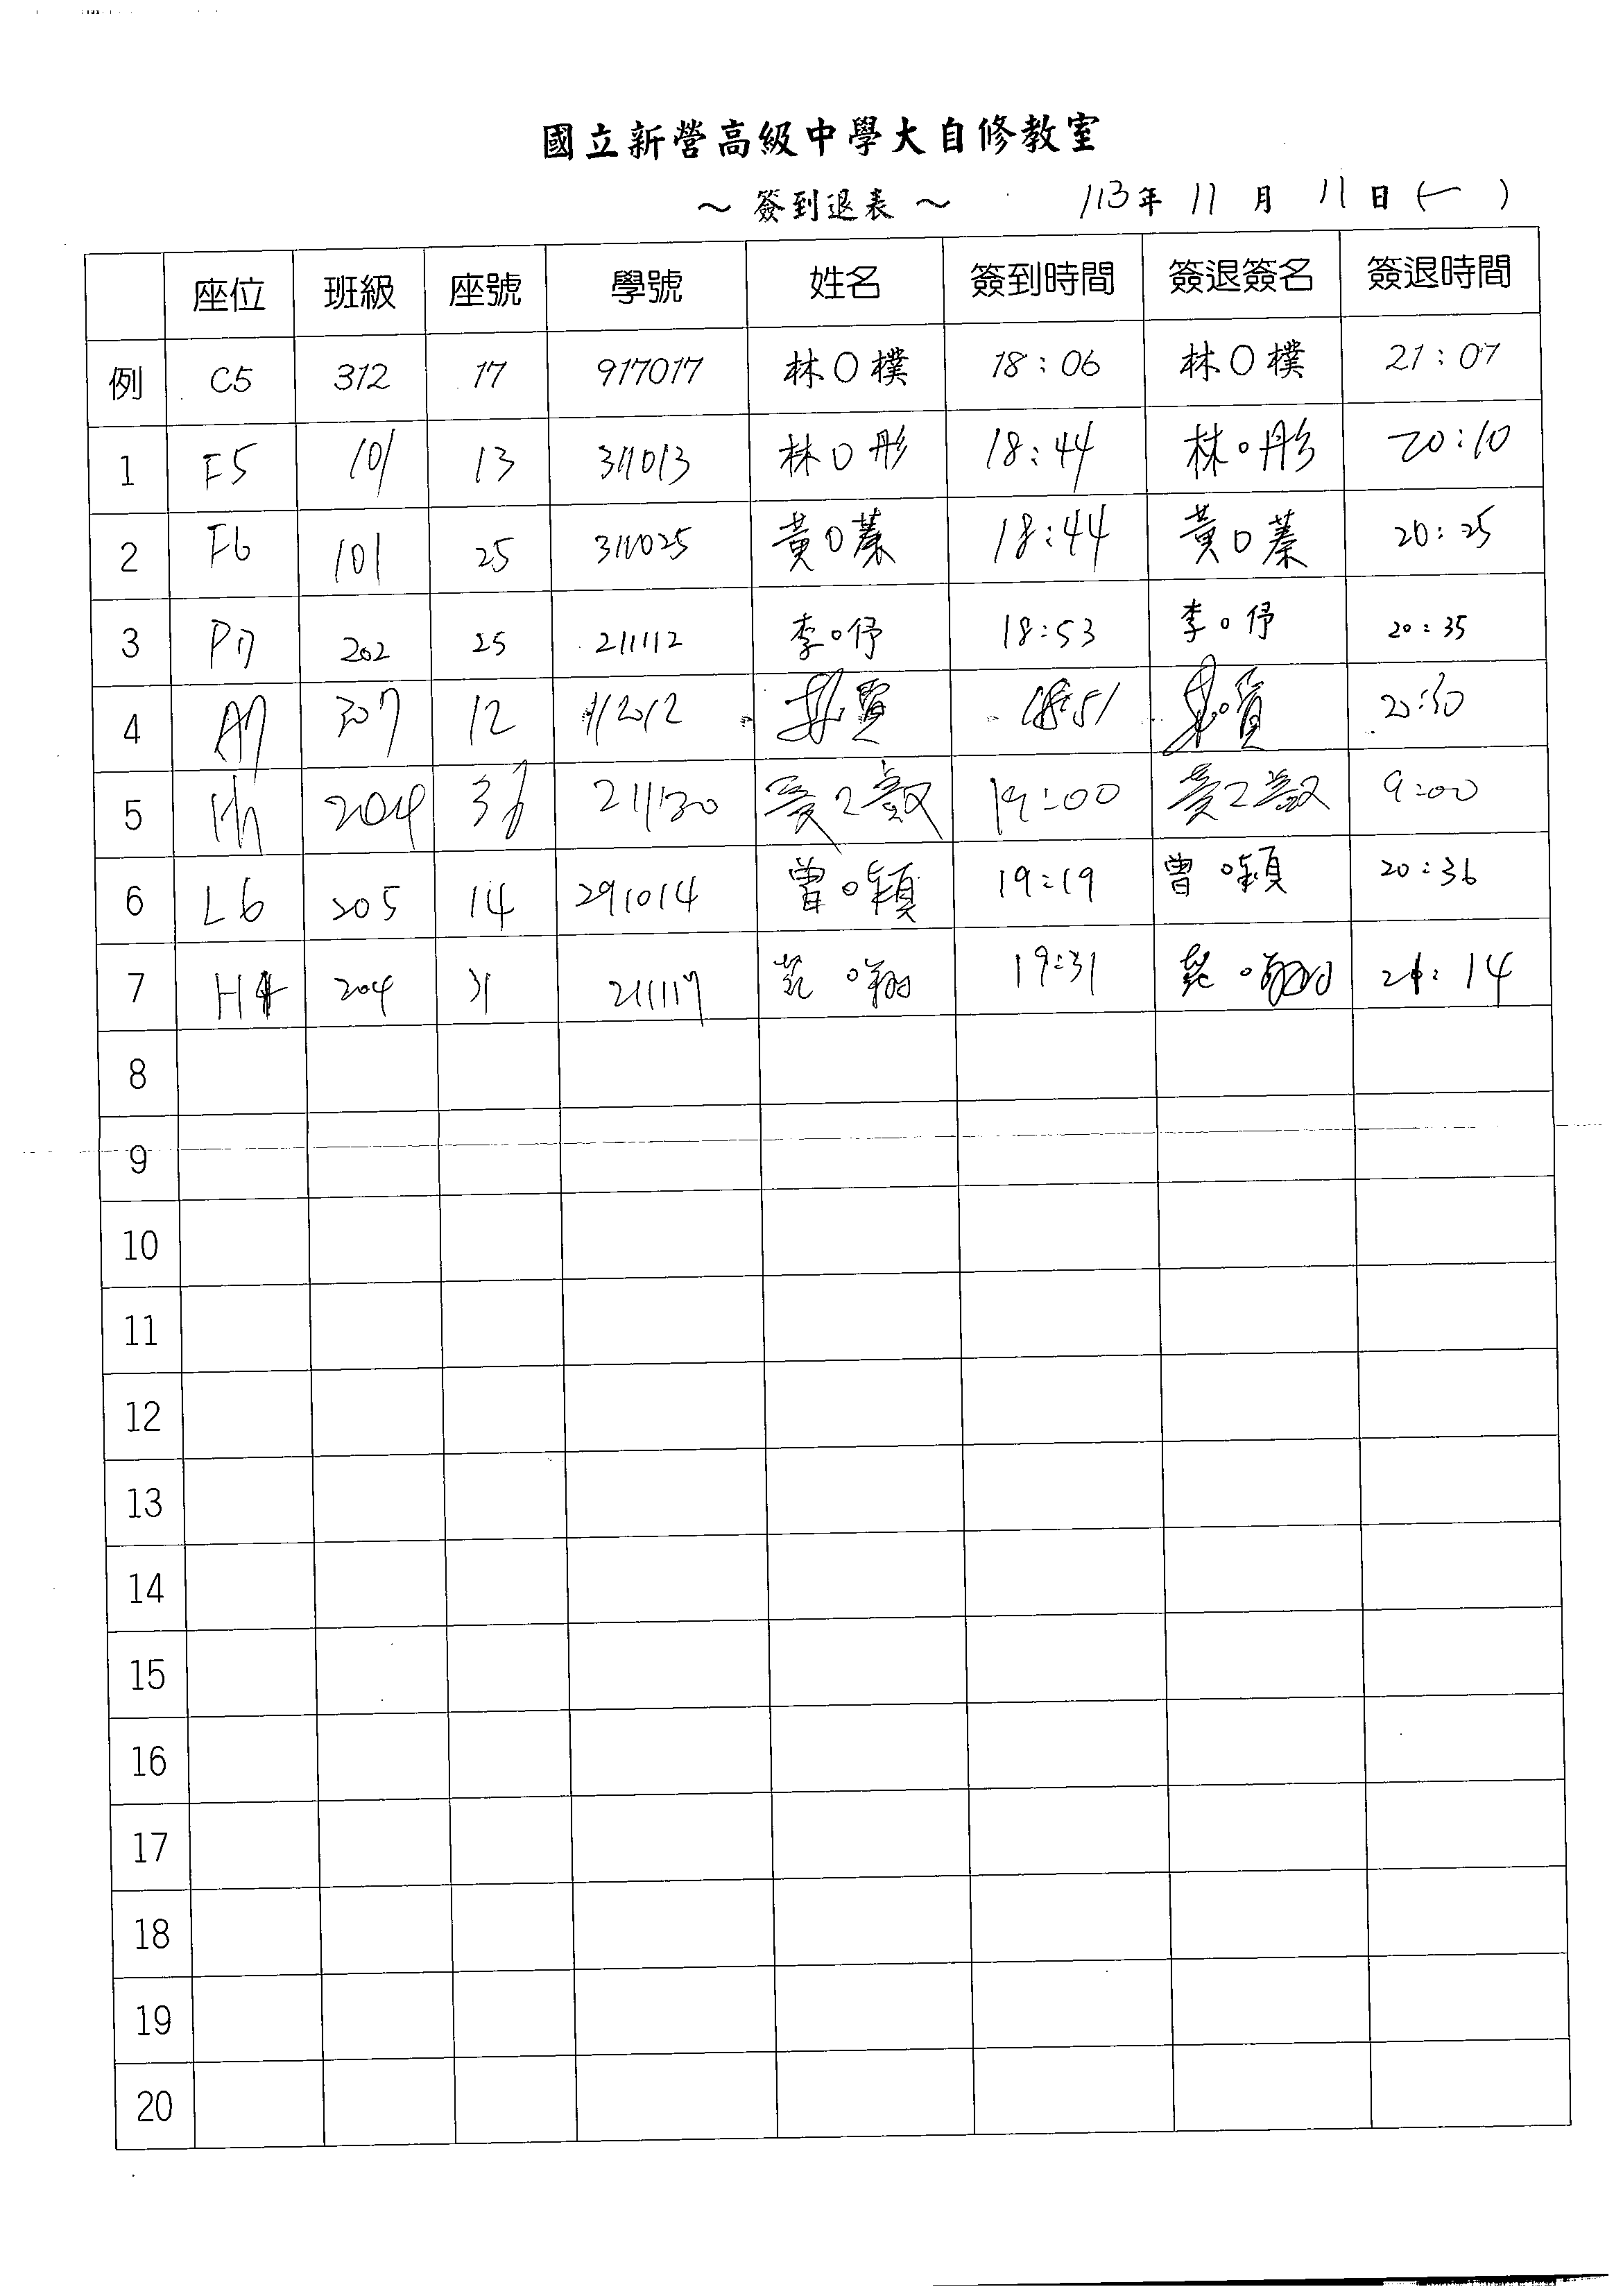 國立新營高級中學大自修教室
～ 簽到退表 ～ 113年 11 月 11 日 (一 )
座位 班級 座號 學號 姓名 簽到時間 簽退簽名 簽退時間
例 C5 312 17 917017 林O樸 18:06 林O樸 21:07
1 F5 101 13 311013 林O彤 18:44 林O彤 20:10
2 F6 101 25 311025 黃O蓁 18:44 黃O蓁 20:25
3 P7 202 25 211112 李O伃 18:53 李O伃 20:35
4 A7 307 12 112012 18:51 20:30
5 204 36 211130 19:00 9:00
6 L6 205 14 291014 曾O穎 19:19 曾O穎 20:36
7 H4 204 31 211117 范O翔 19:31 范O翔 21:14
8
9
10
11
12
13
14
15
16
17
18
19
20